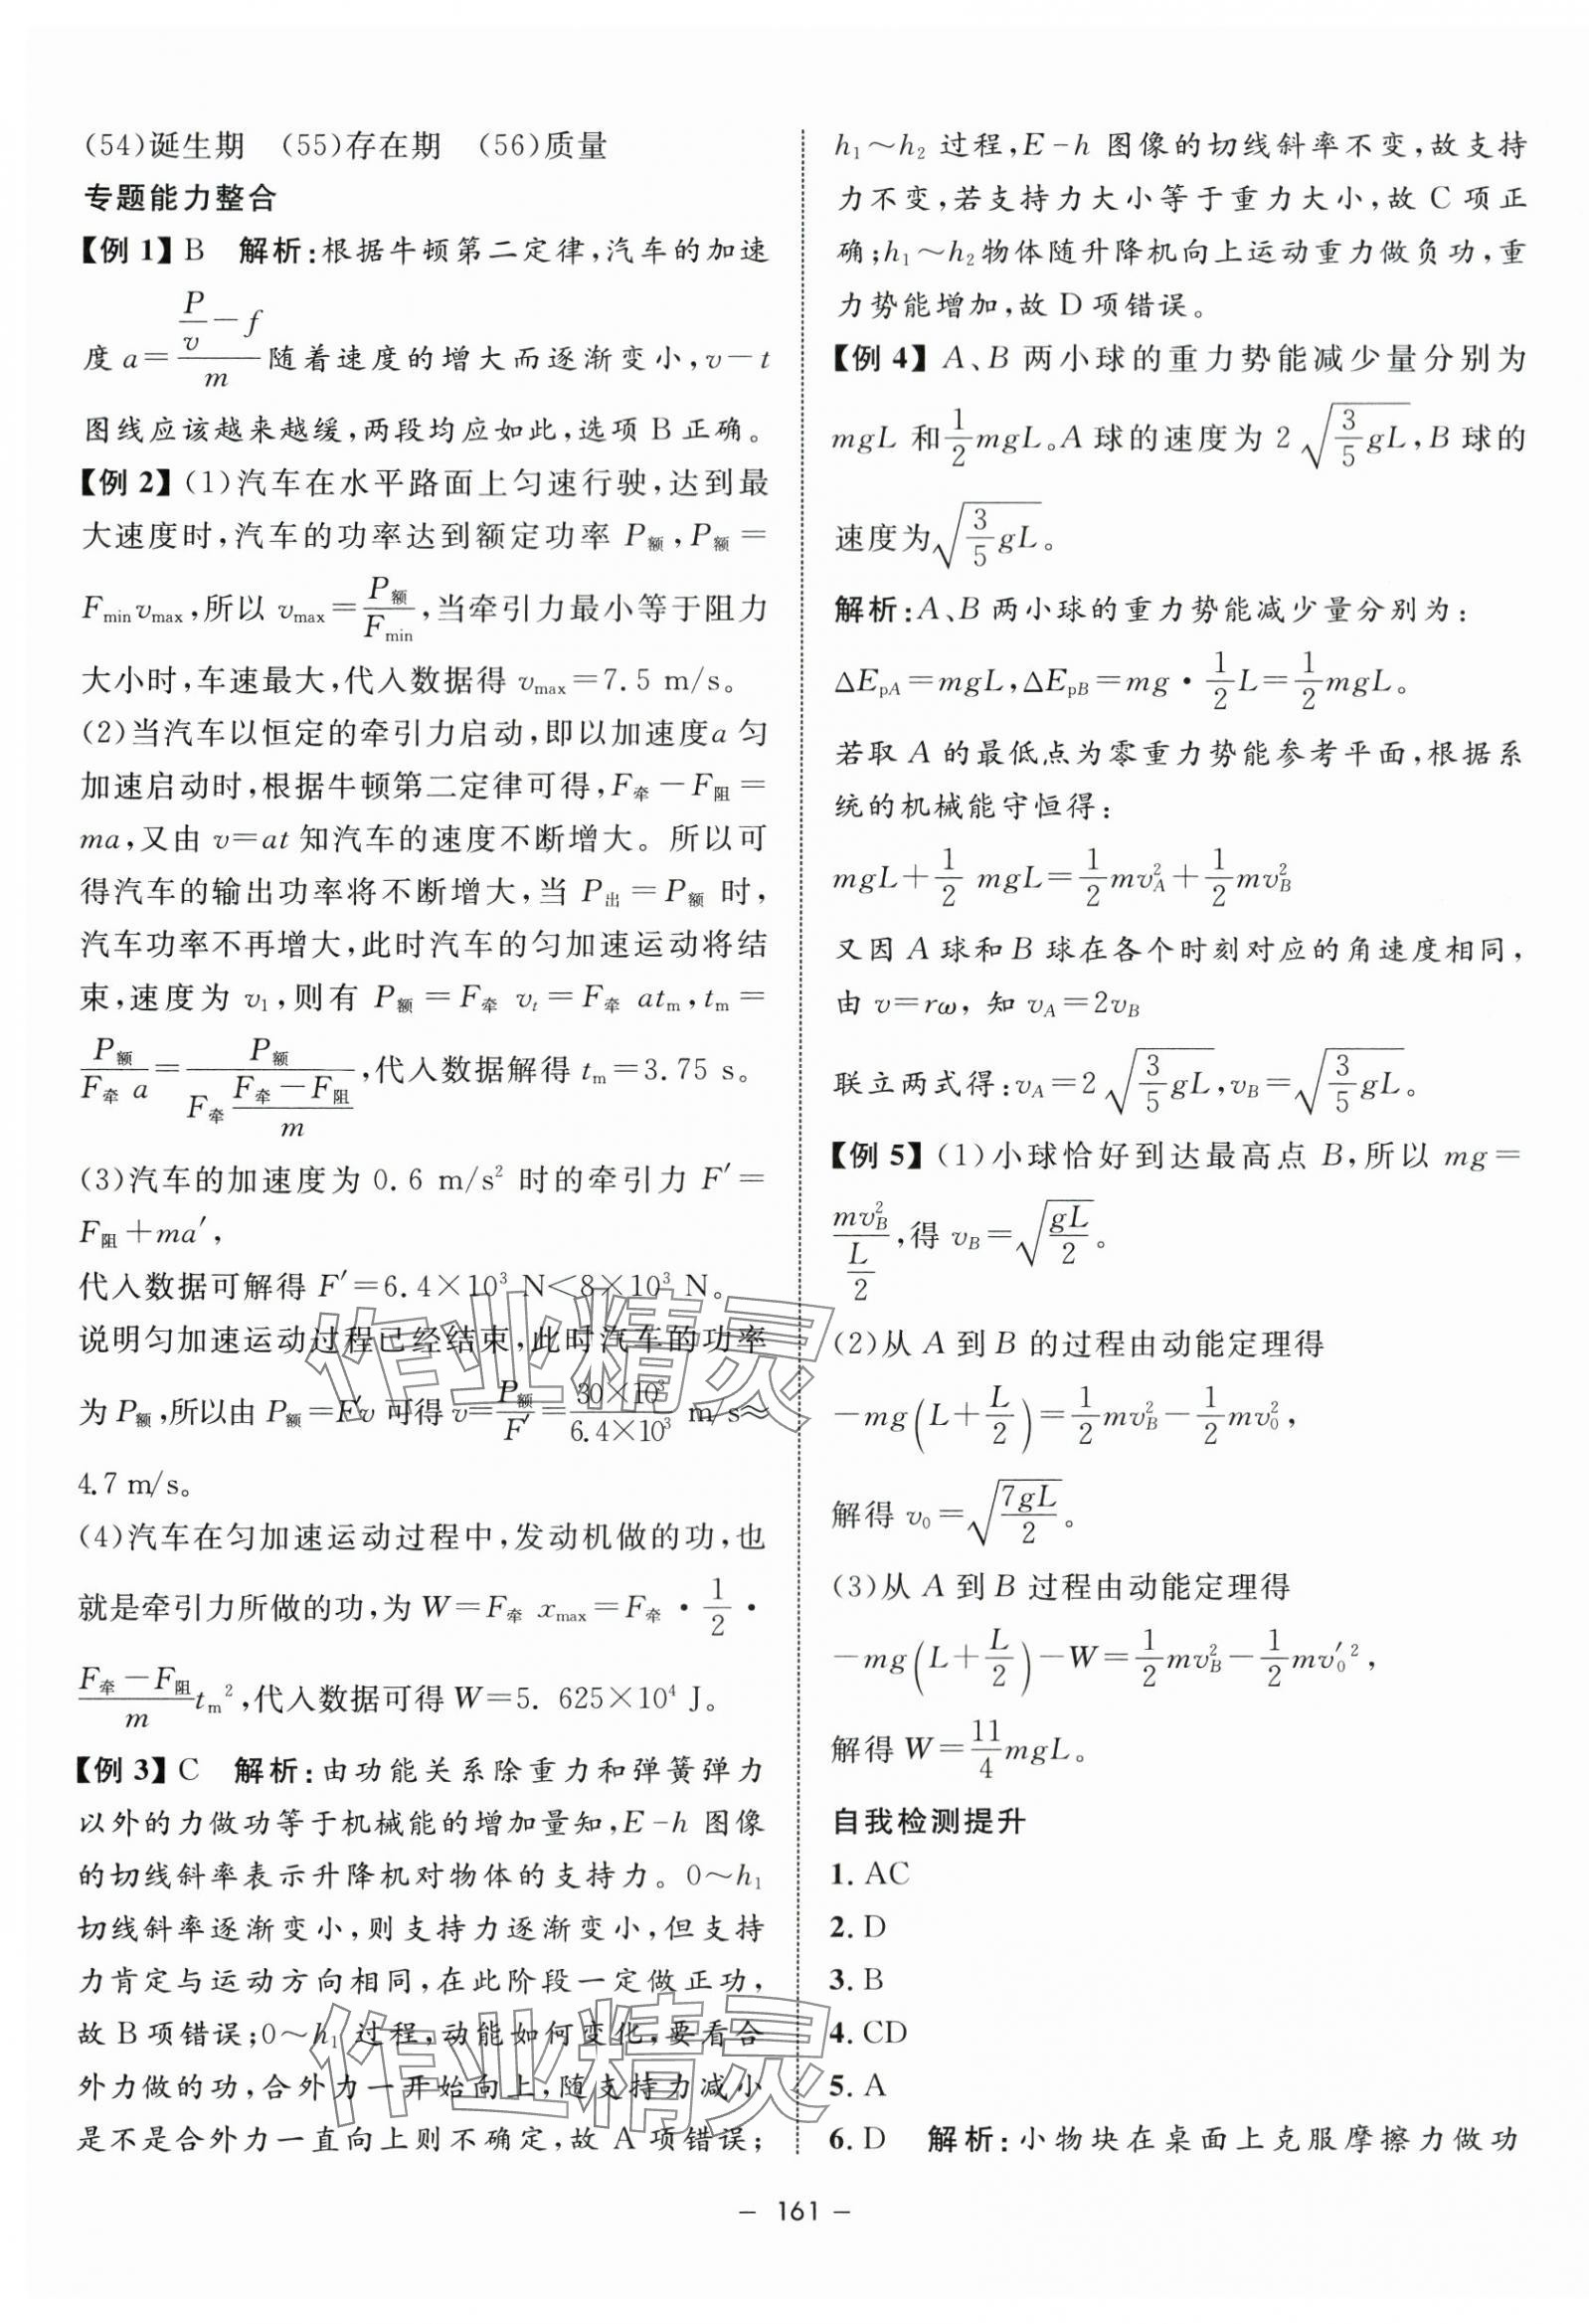 (54)诞生期　(55)存在期　(56)质量
专题能力整合
【例 1】B　解析:根据牛顿第二定律,汽车的加速
度 a=\frac{\frac{P}{v}-f}{m}随着速度的增大而逐渐变小,v-t
图线应该越来越缓,两段均应如此,选项 B 正确。
【例 2】(1)汽车在水平路面上匀速行驶,达到最
大速度时,汽车的功率达到额定功率 P额,P额=
F_{min}v_{max},所以 v_{max}=\frac{P额}{F_{min}},当牵引力最小等于阻力
大小时,车速最大,代入数据得 v_{max}=7.5 m/s。
(2)当汽车以恒定的牵引力启动,即以加速度a 匀
加速启动时,根据牛顿第二定律可得,F牵-F阻=
ma,又由 v=at 知汽车的速度不断增大。所以可
得汽车的输出功率将不断增大,当 P出=P额 时,
汽车功率不再增大,此时汽车的匀加速运动将结
束,速度为 v_1,则有 P额=F牵 v_t=F牵 at_m,t_m=
\frac{P额}{F牵 a}=\frac{P额}{F牵\frac{F牵-F阻}{m}},代入数据解得 t_m=3.75 s。
(3)汽车的加速度为 0.6 m/s² 时的牵引力 F′=
F阻+ma′,
代入数据可解得 F′=6.4×10³ N<8×10³ N。
说明匀加速运动过程已经结束,此时汽车的功率
为 P额,所以由 P额=F′v 可得 v=\frac{P额}{F′}=\frac{30×10³}{6.4×10³} m/s≈
4.7 m/s。
(4)汽车在匀加速运动过程中,发动机做的功,也
就是牵引力所做的功,为 W=F牵 x_{max}=F牵·\frac{1}{2}·
\frac{F牵-F阻}{m}t_m²,代入数据可得 W=5. 625×10⁴ J。
【例 3】C　解析:由功能关系除重力和弹簧弹力
以外的力做功等于机械能的增加量知,E-h 图像
的切线斜率表示升降机对物体的支持力。0～h_1
切线斜率逐渐变小,则支持力逐渐变小,但支持
力肯定与运动方向相同,在此阶段一定做正功,
故 B 项错误;0～h_1 过程,动能如何变化,要看合
外力做的功,合外力一开始向上,随支持力减小
是不是合外力一直向上则不确定,故 A 项错误;
h_1～h_2 过程,E-h 图像的切线斜率不变,故支持
力不变,若支持力大小等于重力大小,故 C 项正
确;h_1～h_2物体随升降机向上运动重力做负功,重
力势能增加,故 D 项错误。
【例 4】A、B 两小球的重力势能减少量分别为
mgL 和\frac{1}{2}mgL。A 球的速度为 2\sqrt{\frac{3}{5}gL},B 球的
速度为\sqrt{\frac{3}{5}gL}。
解析:A、B 两小球的重力势能减少量分别为:
ΔE_{pA}=mgL,ΔE_{pB}=mg·\frac{1}{2}L=\frac{1}{2}mgL。
若取 A 的最低点为零重力势能参考平面,根据系
统的机械能守恒得:
mgL+\frac{1}{2} mgL=\frac{1}{2}mv_A^2+\frac{1}{2}mv_B^2
又因 A 球和 B 球在各个时刻对应的角速度相同,
由 v=rω, 知 v_A=2v_B
联立两式得:v_A=2\sqrt{\frac{3}{5}gL},v_B=\sqrt{\frac{3}{5}gL}。
【例 5】(1)小球恰好到达最高点 B,所以 mg=
\frac{mv_B^2}{\frac{L}{2}},得 v_B=\sqrt{\frac{gL}{2}}。
(2)从 A 到 B 的过程由动能定理得
-mg(L+\frac{L}{2})=\frac{1}{2}mv_B^2-\frac{1}{2}mv_0^2,
解得 v_0=\sqrt{\frac{7gL}{2}}。
(3)从 A 到 B 过程由动能定理得
-mg(L+\frac{L}{2})-W=\frac{1}{2}mv_B^2-\frac{1}{2}mv_0′^2,
解得 W=\frac{11}{4}mgL。
自我检测提升
1. AC
2. D
3. B
4. CD
5. A
6. D　解析:小物块在桌面上克服摩擦力做功
作业精灵
作业精灵
- 161 -